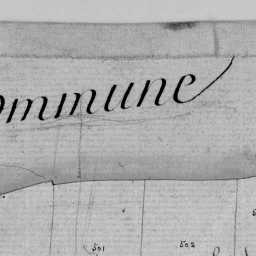 ommune
501
502